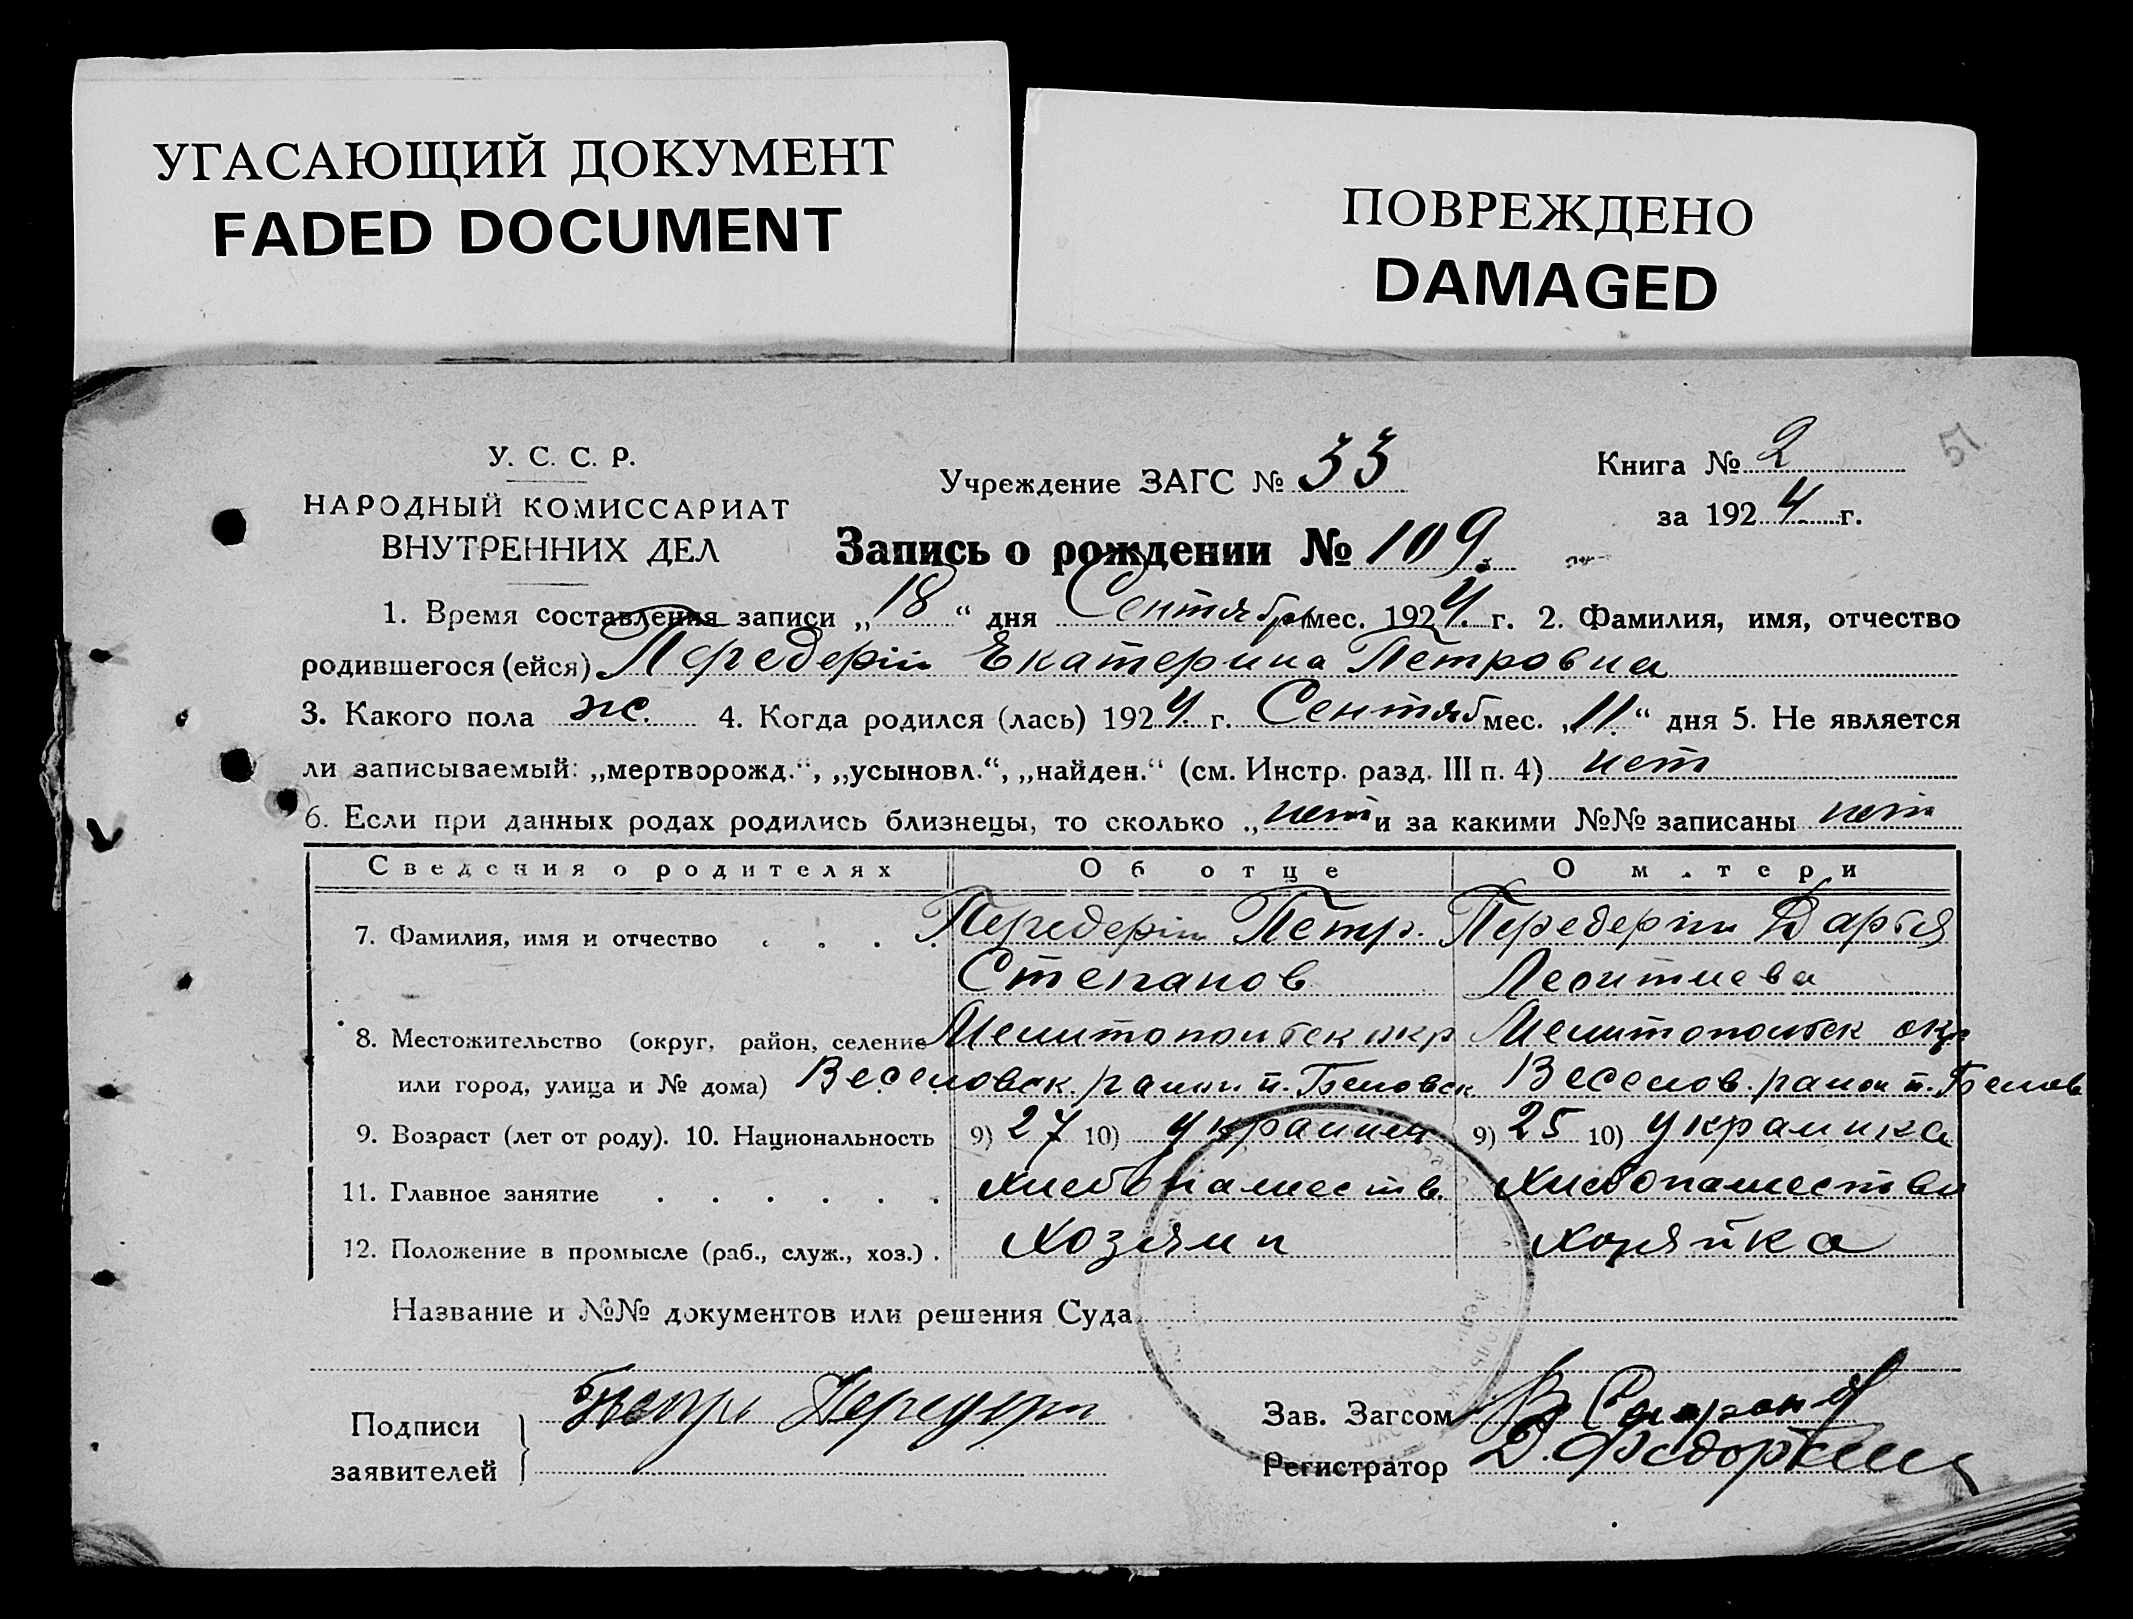 УГАСАЮЩИЙ ДОКУМЕНТ
FADED DOCUMENT
ПОВРЕЖДЕНО
DAMAGED
51
У. С. С. Р.
НАРОДНЫЙ КОМИССАРИАТ
ВНУТРЕННИХ ДЕЛ
Учреждение ЗАГС № 33
Книга № 2
за 1924 г.
Запись о рождении № 109.
1. Время составления записи „18“ дня Сентября мес. 1924 г. 2. Фамилия, имя, отчество
родившегося (ейся) Передерій Екатерина Петровна
3. Какого пола ж. 4. Когда родился (лась) 1924 г. Сентяб мес. „11“ дня 5. Не является
ли записываемый: „мертворожд.“, „усыновл.“, „найден.“ (см. Инстр. разд. III п. 4) нет
6. Если при данных родах родились близнецы, то сколько „нет и за какими №№ записаны нет
Сведения о родителях Об отце О матери
7. Фамилия, имя и отчество . . . . Передерій Петр. Передерій Дарья
Степанов Леонтиева
8. Местожительство (округ, район, селение Мелитопольск окр Мелитопольск окр
или город, улица и № дома) Веселовск. район п. Беловск Веселов. район п. Белов
9. Возраст (лет от роду). 10. Национальность 9) 27 10) украинец 9) 25 10) украинка
11. Главное занятие . . . . . . хлебопашеств. хлебопашество
12. Положение в промысле (раб., служ., хоз.) . хозяин хозяйка
Название и №№ документов или решения Суда
Подписи
заявителей
Петр
Зав. Загсом
Регистратор